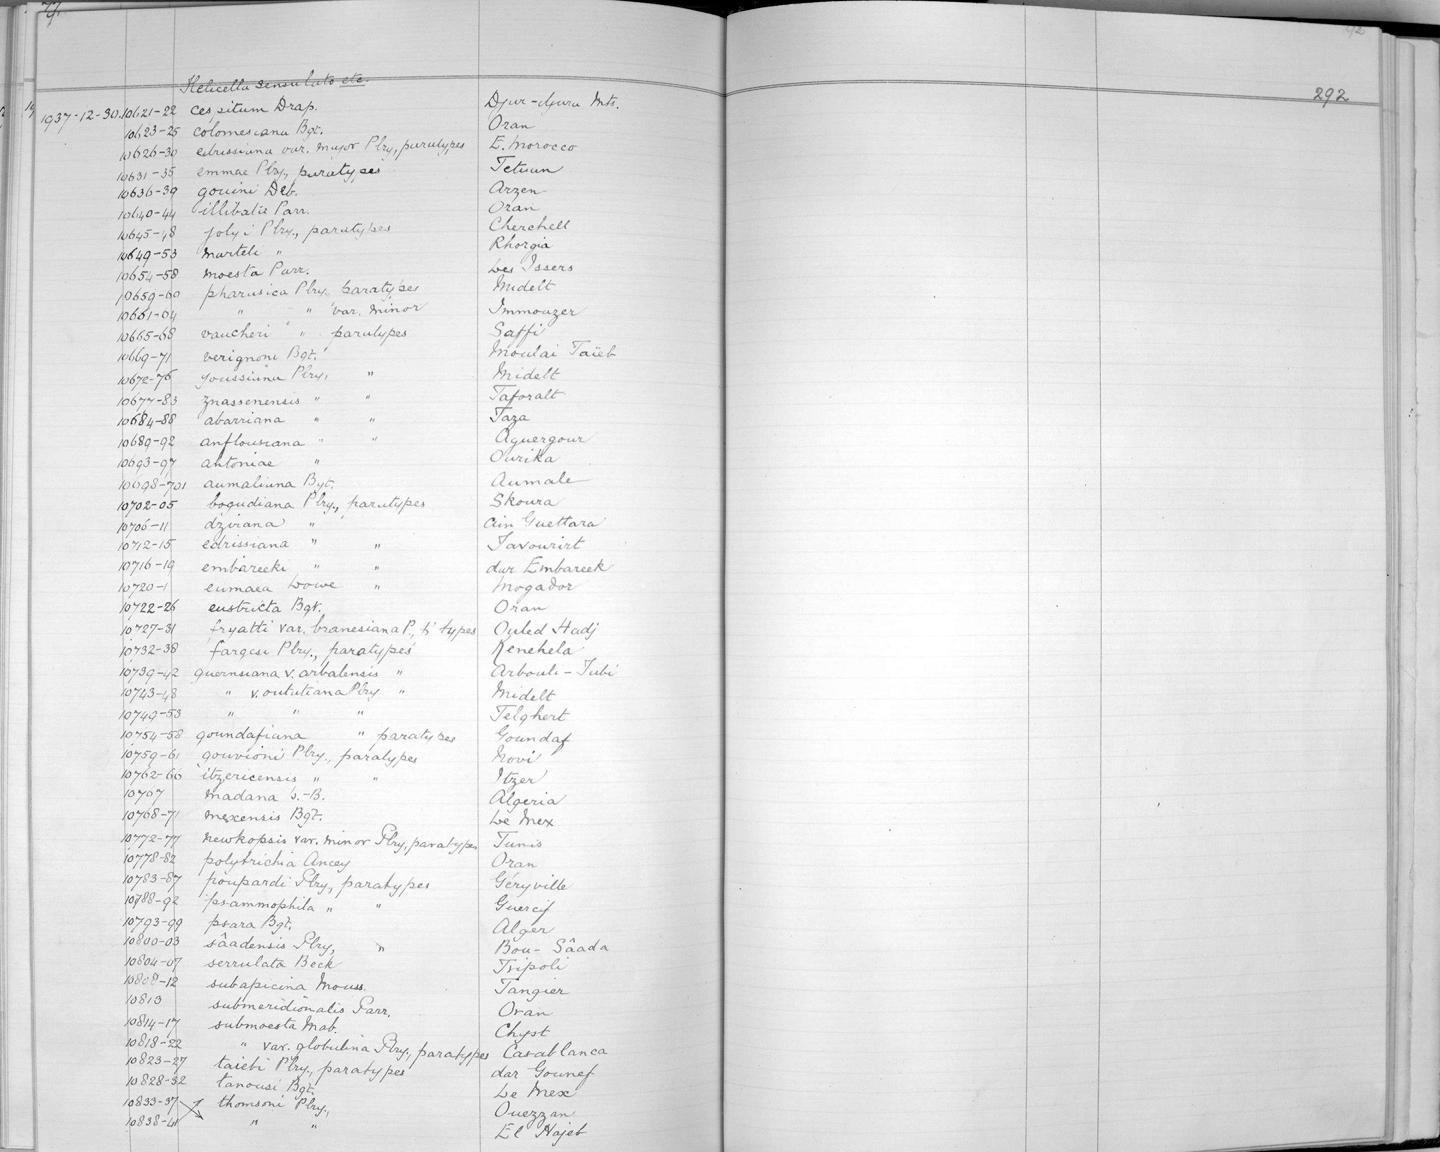 77.
292
Helicella sensulato etc.
1937-12-30. 10621-22 cespitum Drap. Djur-djura Mts.
10623-25 colomesiana Bgt. Oran
10626-30 edrissiana var. major Plry, paratypes E. Morocco
10631-35 emmae Plry., paratypes Tetuan
10636-39 gouini Deb. Arzen
10640-44 illibatis Parr. Oran
10645-48 jolyi Plry., paratypes Cherchell
10649-53 marteli " Rhorgia
10654-58 moesta Parr. Les Issers
10659-60 pharusica Plry. paratypes Midelt
10661-64 " " var. minor Immouzer
10665-68 vaucheri " paratypes Saffi
10669-71 verignoni Bgt. Moulai Taïeb
10672-76 youssiana Plry, " Midelt
10677-83 znassenensis " " Taforalt
10684-88 abarriana " " Taza
10689-92 anflousiana " " Aguergour
10693-97 antoniae " Ourika
10698-701 aumaliana Bgt. Aumale
10702-05 bogudiana Plry., paratypes Skoura
10706-11 dzirana " Ain Guettara
10712-15 edrissiana " " Tavourirt
10716-19 embareeki " " dar Embareek
10720-1 eumaea Lowe " Mogador
10722-26 eustricta Bgt. Oran
10727-31 fryatti var. branesiana P., p' types Ouled Hadj
10732-38 fargesi Plry., paratypes Kenehela
10739-42 guernsiana v. arbalensis " Arboul-Tubi
10743-48 " v. oututiana Plry " Midelt
10749-53 " " " Telghert
10754-58 goundafiana " paratypes Goundaf
10759-61 gouvioni Plry., paratypes Novi
10762-66 itzericensis " " Itzer
10767 madana S.-B. Algeria
10768-71 mexensis Bgt. Le Mex
10772-77 newkopsis var. minor Plry, paratypes Tunis
10778-82 polytrichia Ancey Oran
10783-87 poupardi Plry, paratypes Géryville
10788-92 psammophila " " Guercif
10793-99 psara Bgt. Alger
10800-03 sâadensis Plry, " Bou-Sâada
10804-07 serrulata Beck Tripoli
10808-12 subapicina Mouss. Tangier
10813 submeridionalis Parr. Oran
10814-17 submoesta Mab. Chyst
10818-22 " var. globulina Plry., paratypes Casablanca
10823-27 taiebi Plry., paratypes dar Gounef
10828-32 tanousi Bgt. Le Mex
10833-37 thomsoni Plry., Ouezzan
10838-41 " " El Hajeb